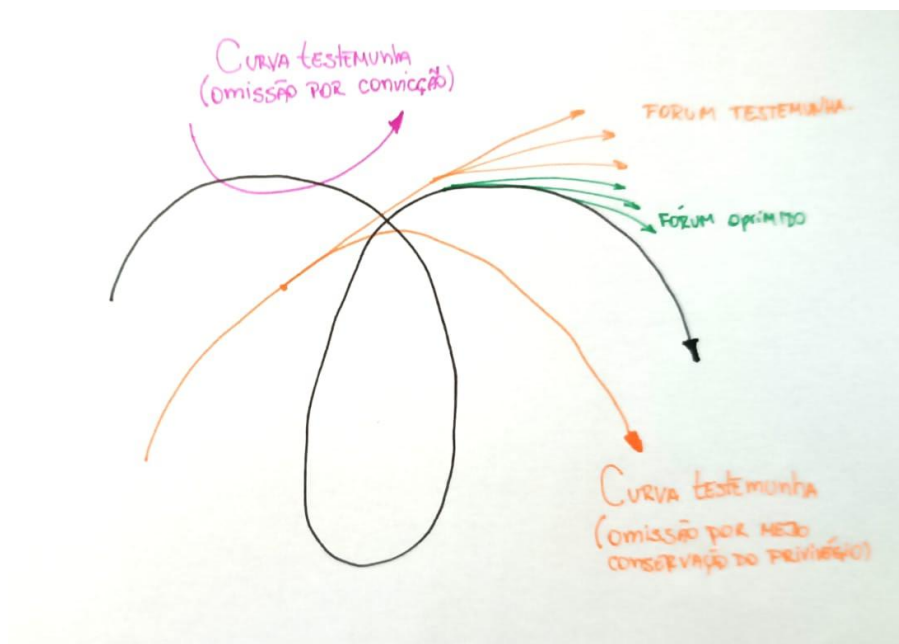 Curva testemunha
(omissão por convicção)
FORUM TESTEMUNHA.
FÓRUM OPRIMIDO
Curva testemunha
(omissão por medo
conservação do privilégio)